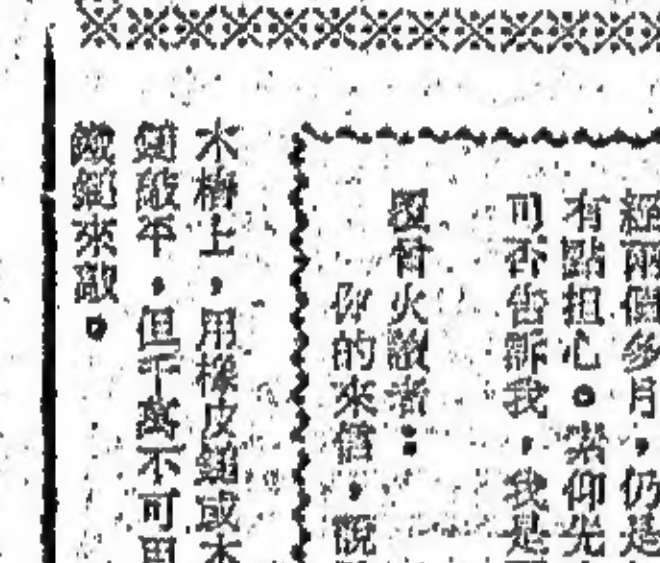 經兩個多月，仍是
有點担心。素仰光
可否告訴我，我是
覆骨火散者：
你的來信，說
木樁上，用橡皮鎚或木
鎚敲平，但千萬不可用
鐵鎚來敲。